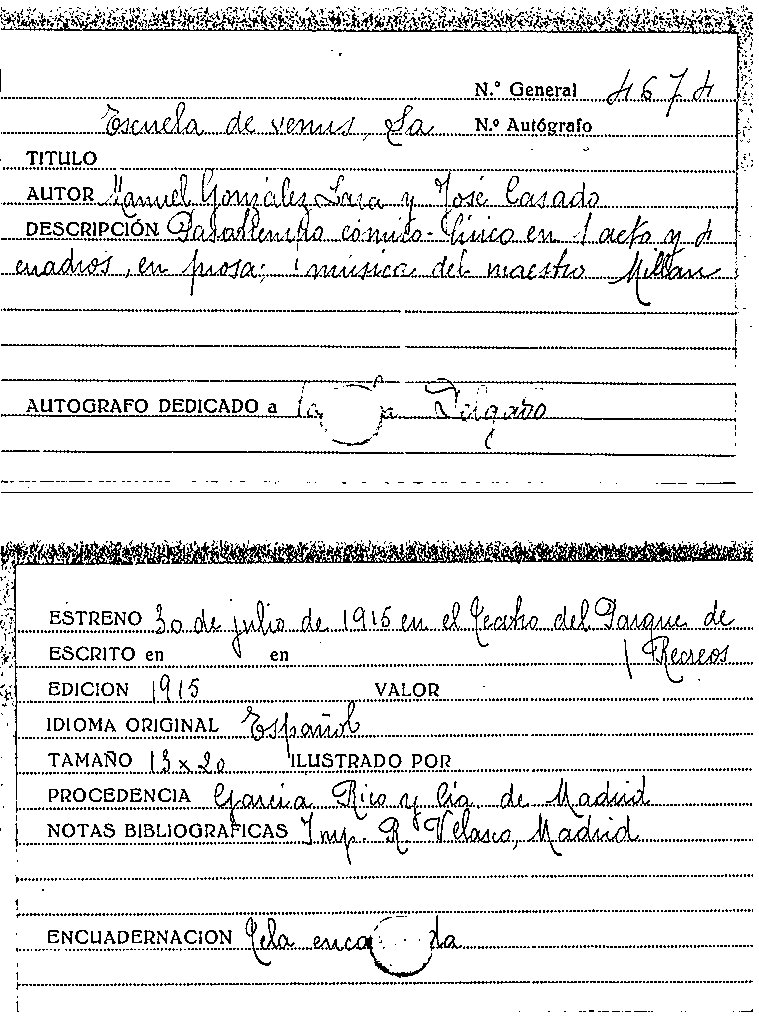 N.º General 4674
Escuela de venus, La N.º Autógrafo
TITULO
AUTOR Manuel González Lara y José Casado
DESCRIPCIÓN Pasatiempo cómico-lírico en 1 acto y 4
cuadros, en prosa; música del maestro Millan
AUTOGRAFO DEDICADO a Delgado
ESTRENO 30 de julio de 1915 en el Teatro del Parque de
ESCRITO en en Recreos
EDICION 1915 VALOR
IDIOMA ORIGINAL Español
TAMAÑO 13 x 20 ILUSTRADO POR
PROCEDENCIA García Rico y Cía. de Madrid
NOTAS BIBLIOGRAFICAS Imp. R. Velasco, Madrid
ENCUADERNACION Tela